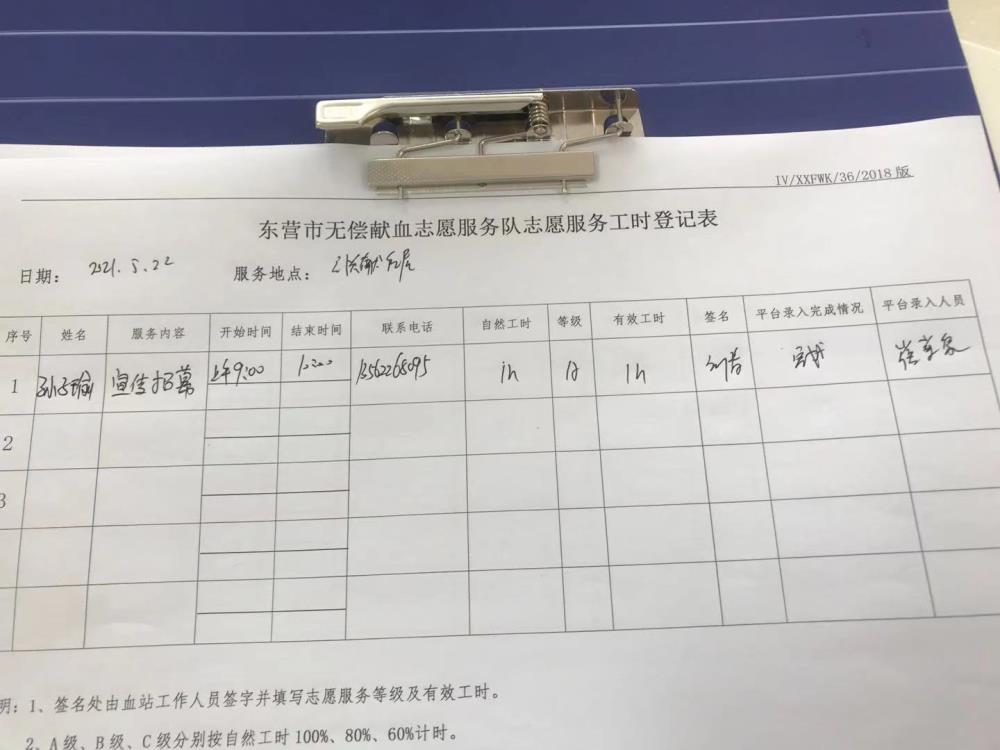 IV/XXFWK/36/2018版
东营市无偿献血志愿服务队志愿服务工时登记表
日期: 2021.5.22 服务地点:
序号 姓名 服务内容 开始时间 结束时间 联系电话 自然工时 等级 有效工时 签名 平台录入完成情况 平台录入人员
1 孙子瑜 宣传招募 上午9:00 10:00 13562268095 1h A 1h 完成
2
3
明: 1、签名处由血站工作人员签字并填写志愿服务等级及有效工时。
2、A级、B级、C级分别按自然工时100%、80%、60%计时。